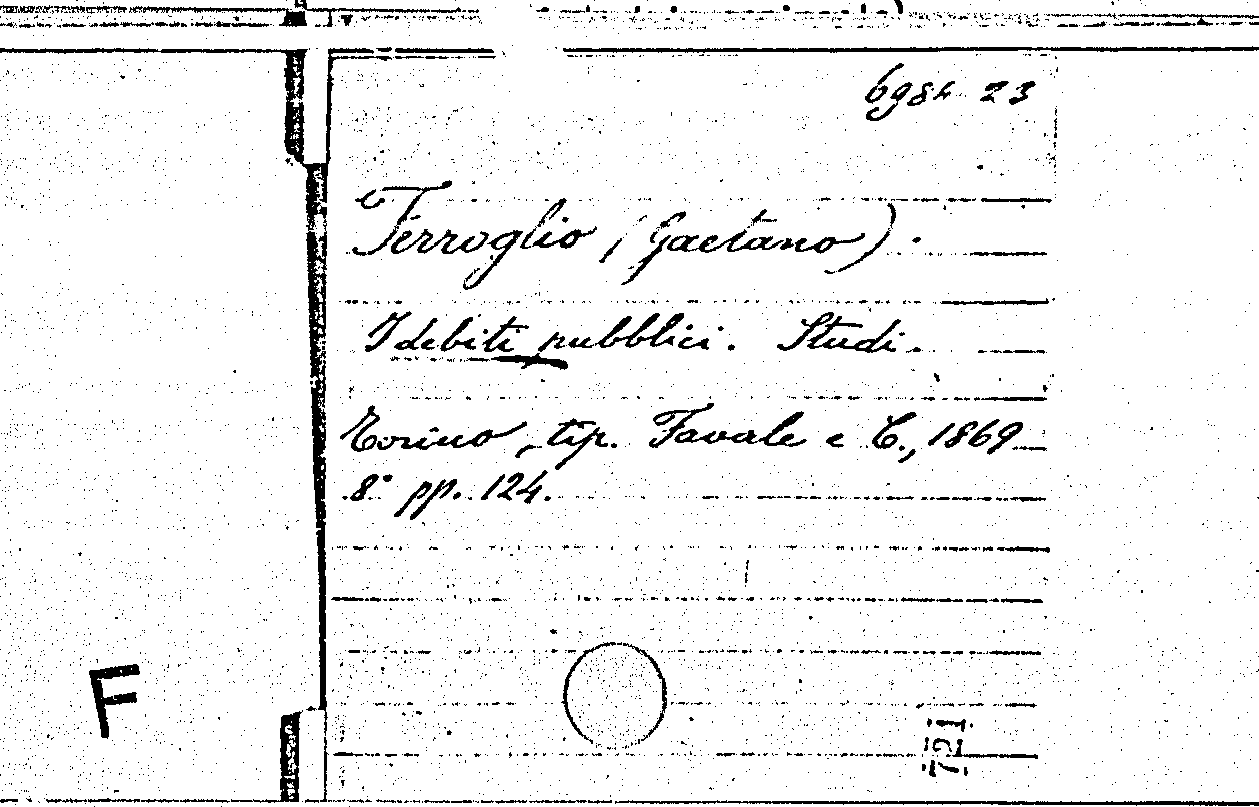 6984 23
Ferroglio (Gaetano).
I debiti pubblici. Studi.
Torino, tip. Favale e C., 1869
8° pp. 124.
F
721